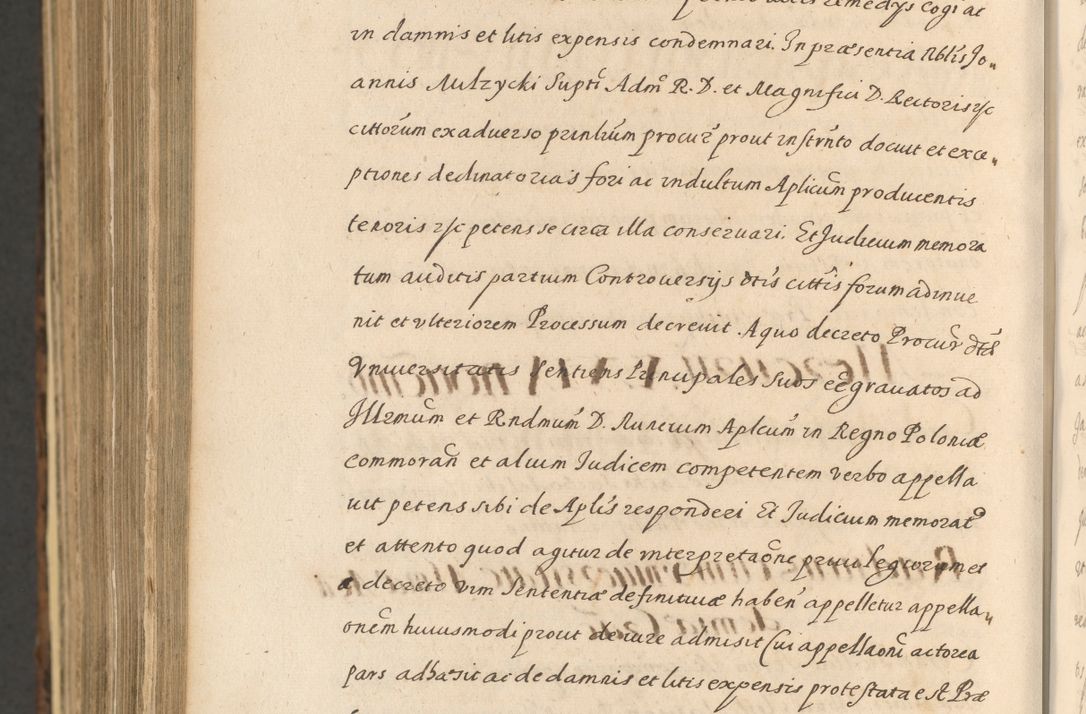 remedys cogi ac
in damnis et litis expensis condemnari. In præsentia Nblis Jo„
annis Milzycki Supti Admi R. D. et Magnifici D. Rectoris &c
cittorum ex aduerso prinlium procur prout instrunto docuit et exce„
ptiones declinatorias fori ac indultum Aplicum producentis
tenoris &c petens se circa illa conseruari. Et Judicium memora
tum auditis partium Controuersijs dtis cittis forum adinue
nit et vlteriorem Processum decreuit. A quo decreto Procur dtæ
Vniuersitatis sentiens Principales suos eê grauatos ad
Illrmum et Rndmum D. Nuncium Aplcum in Regno Poloniæ
commoran et alium Iudicem competentem verbo appella
uit petens sibi de Aplis responderi Et Judicium memorat
et attento quod agitur de interpretaone priuilegiorum et
a decreto vim Sententiæ definitiuæ haben appelletur appella„
onem huiusmodi prout de iure admisit Cui appellaoni actorea
pars adhæsit ac de damnis et litis expensis protestata e st Præ